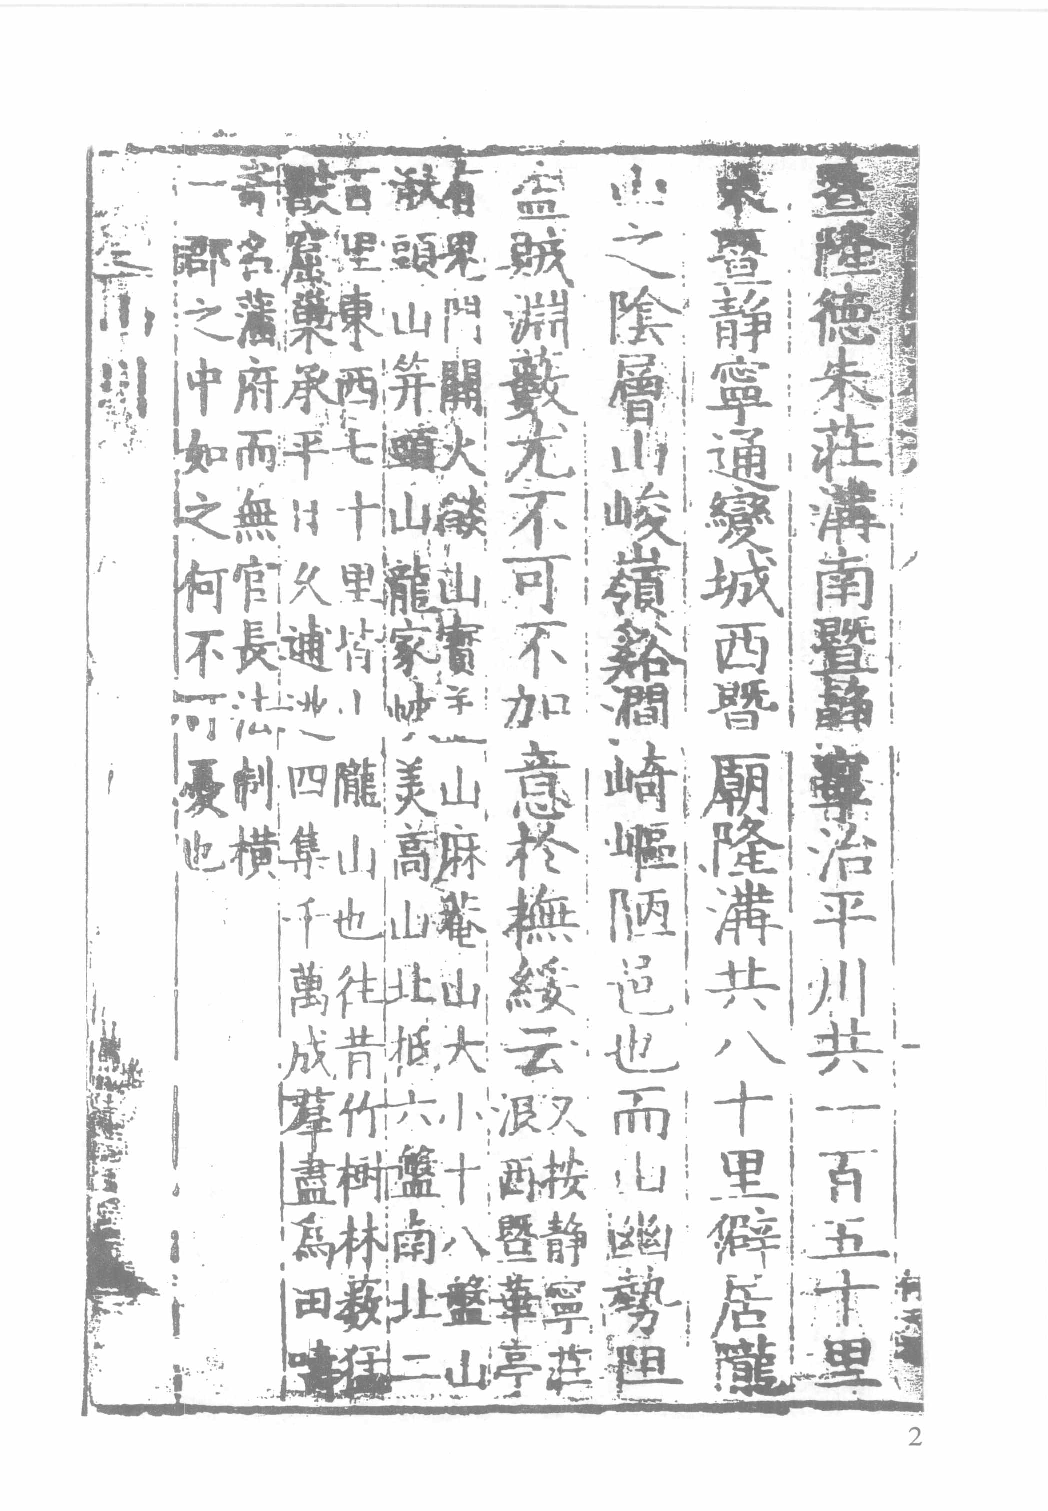 暨隆德朱莊溝南暨靜寧治平川共一百五十里
東暨靜寧通變城西暨廟隆溝共八十里僻居隴
山之陰層山峻嶺谿澗崎嶇陋邑也而山幽勢阻
盜賊淵藪尤不可不加意於撫綏云
又按靜寧莊
浪西暨華亭
有界門關火燄山寶羊山麻菴山大小十八盤山
頭山笄頭山龍家峽美高山北抵六盤南北二
百里東西七十里皆小隴山也往昔竹樹林藪猛
獸窟巢承平日久逋逃四集千萬成羣盡為田
名藩府而無官長法制橫
一郡之中如之何不可憂也
山川
2